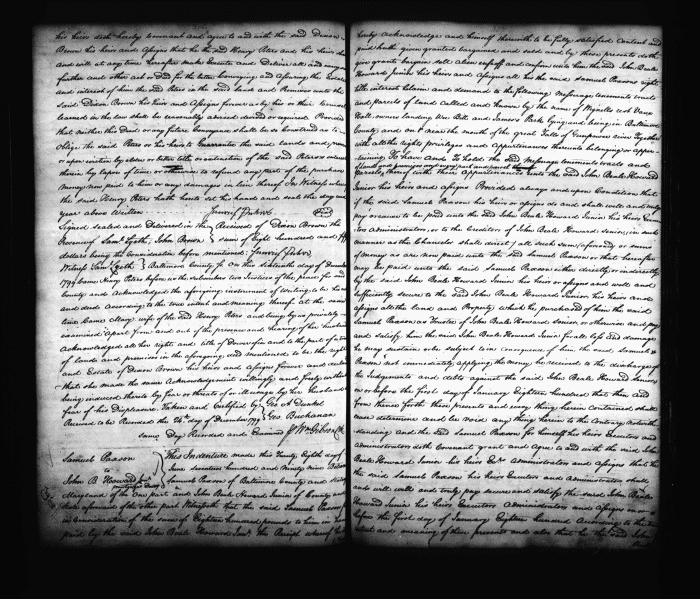 his heirs doth hereby covenant and agree to and with the said Dixon
Brown his heirs and Assigns that he the said Henry Peters and his heirs
and will at any time hereafter make Execute and Deliver all and any
further and other act or Deed for the better Conveying and Assuring the Estate
and interest of him the said Peters in the said Land and Premises unto the
said Dixon Brown his heirs and Assigns forever as by his or their Counsel
learned in the law shall be reasonably advised devised or required Provided
that neither this Deed or any future Conveyance shall be so Construed as to
Oblige the said Peters or his heirs to Warrantee the said Lands and
or upon eviction by elder or better title or entration of the said Peters
therein by lapse of time or otherwise to refund any part of the purchase
Money now paid to him or any damages in lieu thereof In Witness whereof
the said Henry Peters hath hereto set his hand and seal the day and
year above Written
Signed sealed and Delivered in the Received of Dixon Brown the
Presence of Saml. John Brown sum of Eight hundred and
being the Consideration before mentioned
Witness Baltimore County Sc On this sixteenth day of December
1799 came Henry Peters before us the subscribers two Justices of the peace for said
County and Acknowledged the aforegoing instrument of Writing to be his act
and deed According to the true intent and meaning thereof at the same
time Came Mary wife of the said Henry Peters and being by us privately
examined Apart from and out of the presence and hearing of her husband
Acknowledged all her right and title of Dower in and to the part of a tract
of land and premises in the aforegoing deed mentioned to be the right
and Estate of Dixon Brown his heirs and Assigns forever and declared
that she made the same Acknowledgement willingly and freely without
being induced thereto by fear or threats of or ill usage by her husband or
fear of his Displeasure. Taken and Certified by Geo A. Dunkel
Received to be Recorded the 24th day of December 1799 Geo Buchanan
Same Day Recorded and Examined Wm Gibson Clk
Samuel Paxson
to
John B Howard Jr
This Indenture made this Twenty Eighth day of
June seventeen hundred and Ninety Nine Between
Samuel Paxson of Baltimore County and State of
Maryland of the One part and John Beale Howard Junior of County and
State aforesaid of the other part Witnesseth that the said Samuel Paxson
in Consideration of the sum of Eighteen hundred pounds to him in
paid by the said John Beale Howard Junr. the Receipt whereof he
hereby Acknowledge and himself therewith to be fully satisfied Content and
paid hath given granted bargained and sold and by these presents doth
give grant bargain sell alien enfeoff and confirm unto him the said John Beale
Howard Junior his heirs and Assigns all he the said Samuel Paxson right
title interest Claim and demand to the following Messuage tenements tracts
and parcels of land Called and known by the name of
Hall owners landing Wee Bill and James's Park lying and being in Baltimore
County and on or near the mouth of the great Falls of Gunpowder river Together
with all the rights privileges and Appurtenances thereunto belonging or apper-
taining To Have and To Hold the said Messuage tenements tracts and
parcels of land with their Appurtenances unto the said John Beale Howard
Junior his heirs and assigns Provided always and upon Condition that
if the said Samuel Paxson his heirs or assigns do and shall well and truly
pay or cause to be paid unto the said John Beale Howard Junior his heirs Execu-
tors Administrators, or to the Creditors of John Beale Howard Senior, in such
manner as the Chancelor shall direct all such sum (aforesaid) or sums
of money as are now paid unto the said Samuel Paxson or that hereafter
may be paid unto the said Samuel Paxson either directly or indirectly
by the said John Beale Howard Junior his heirs or assigns and well and
sufficiently secure to the said John Beale Howard Junior his heirs and
assigns all the land and Property which he purchased of him the said
Samuel Paxson as Trustee of John Beale Howard senior, or otherwise and pay
and satisfy him the said John Beale Howard Junior for all loss and damage
he may sustain or be subject to in consequence of him the said Samuel
Paxson not immediately applying the money he received to the discharge of
the Judgements and debts against the said John Beale Howard Senior
on or before the first day of January Eighteen hundred that then and
from thence forth these presents and every thing herein Contained shall
cease determine and be Void any thing herein to the Contrary notwith-
standing and the said Samuel Paxson for himself his heirs Executors and
Administrators doth Covenant grant and agree to and with the said John
Beale Howard Junior his heirs &c administrators and Assigns that he
the said Samuel Paxson his heirs Executors and Administrators shall
and will well and truly pay secure and satisfy the said John Beale
Howard Junior his heirs Executors Administrators and Assigns on or
before the first day of January Eighteen hundred According to the
intent and meaning of these presents and also that he the said John